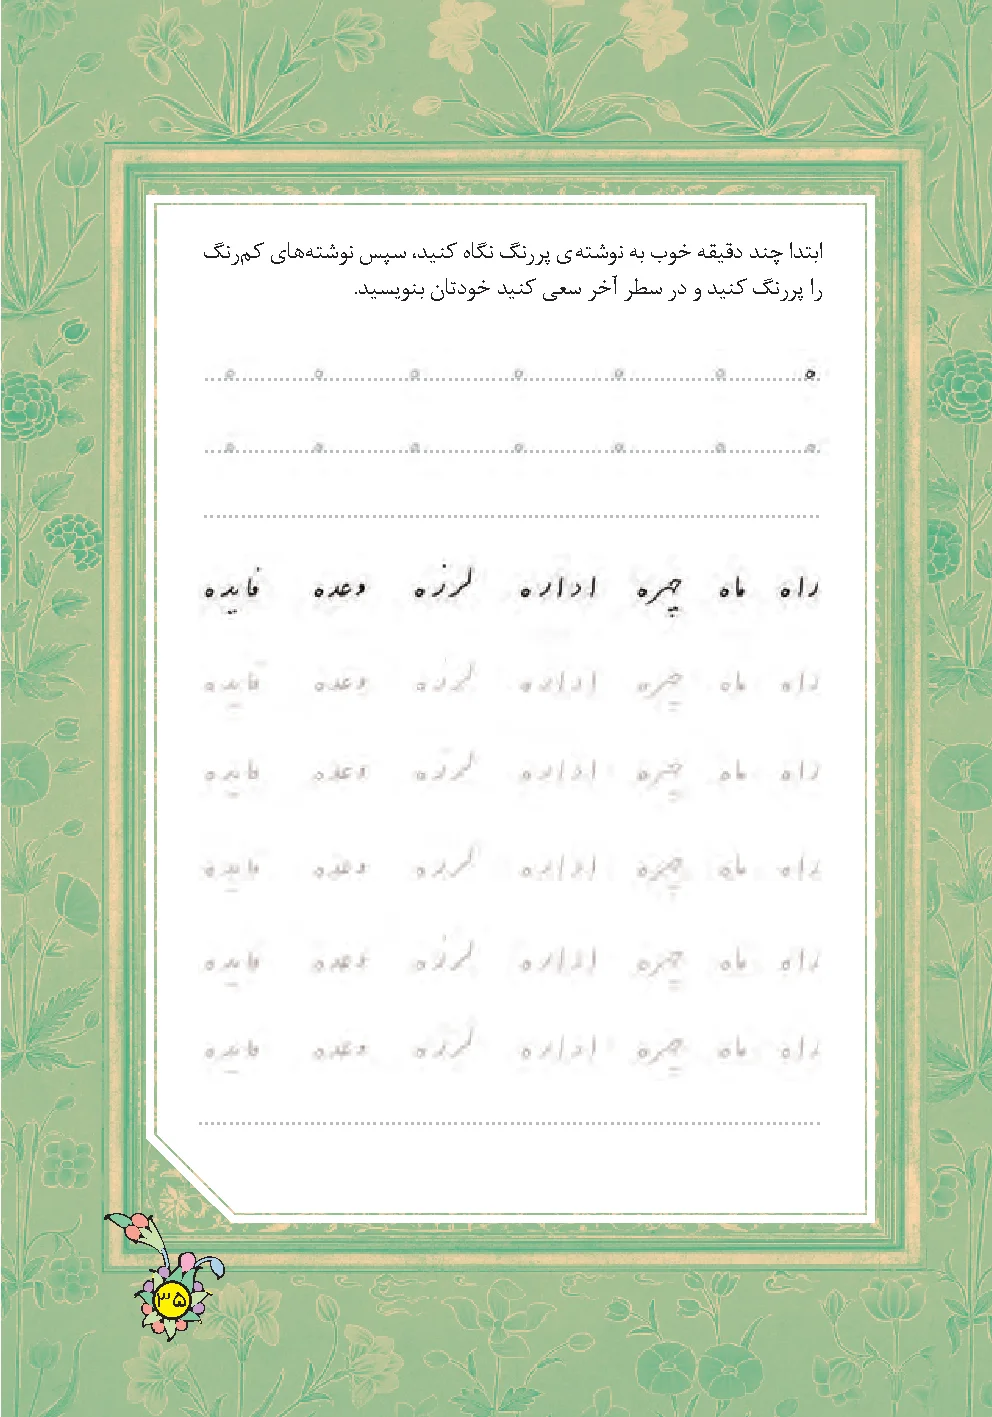 ابتدا چند دقیقه خوب به نوشته‌ی پررنگ نگاه کنید، سپس نوشته‌های کم‌رنگ
را پررنگ کنید و در سطر آخر سعی کنید خودتان بنویسید.
ه ه ه ه ه ه ه
ه ه ه ه ه ه ه
راه ماه چهره اداره لرزه وعده فایده
راه ماه چهره اداره لرزه وعده فایده
راه ماه چهره اداره لرزه وعده فایده
راه ماه چهره اداره لرزه وعده فایده
راه ماه چهره اداره لرزه وعده فایده
راه ماه چهره اداره لرزه وعده فایده
۳۵